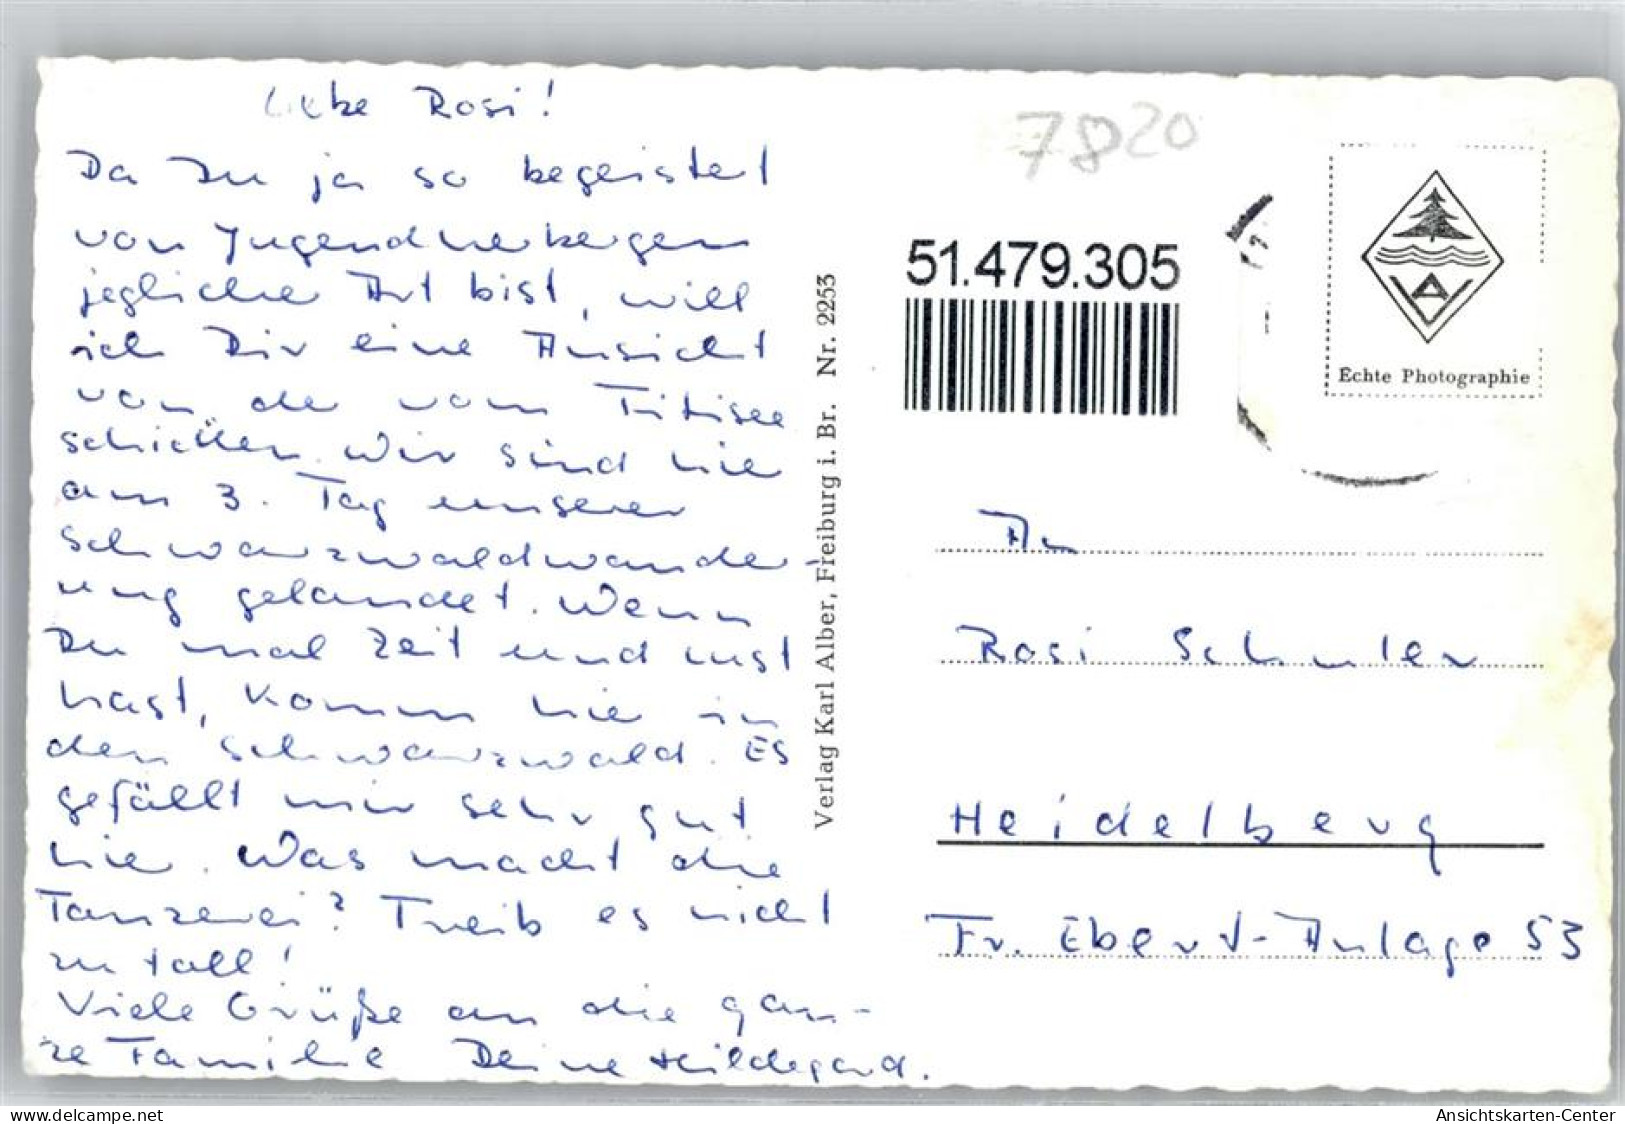 Liebe Rosi!
Da Du ja so begeistert
von Jugendherbergen
jegliche Art bist, will
ich Dir eine Ansicht
von der vom Titisee
schicken. Wir sind hier
am 3. Tag unserer
Schwarzwaldwande-
rung gelandet. Wenn
Du mal Zeit und Lust
hast, komm hier in
den Schwarzwald. Es
gefällt mir sehr gut
hier. Was macht die
Tanzerei? Treib es nicht
zu toll!
Viele Grüße an die gan-
ze Familie Deine Hildegard.
Verlag Karl Alber, Freiburg i. Br. Nr. 2253
7820
51.479.305
Echte Photographie
An
Rosi Schuler
Heidelberg
Fr. Ebert-Anlage 53
delcampe.net
Ansichtskarten-Center